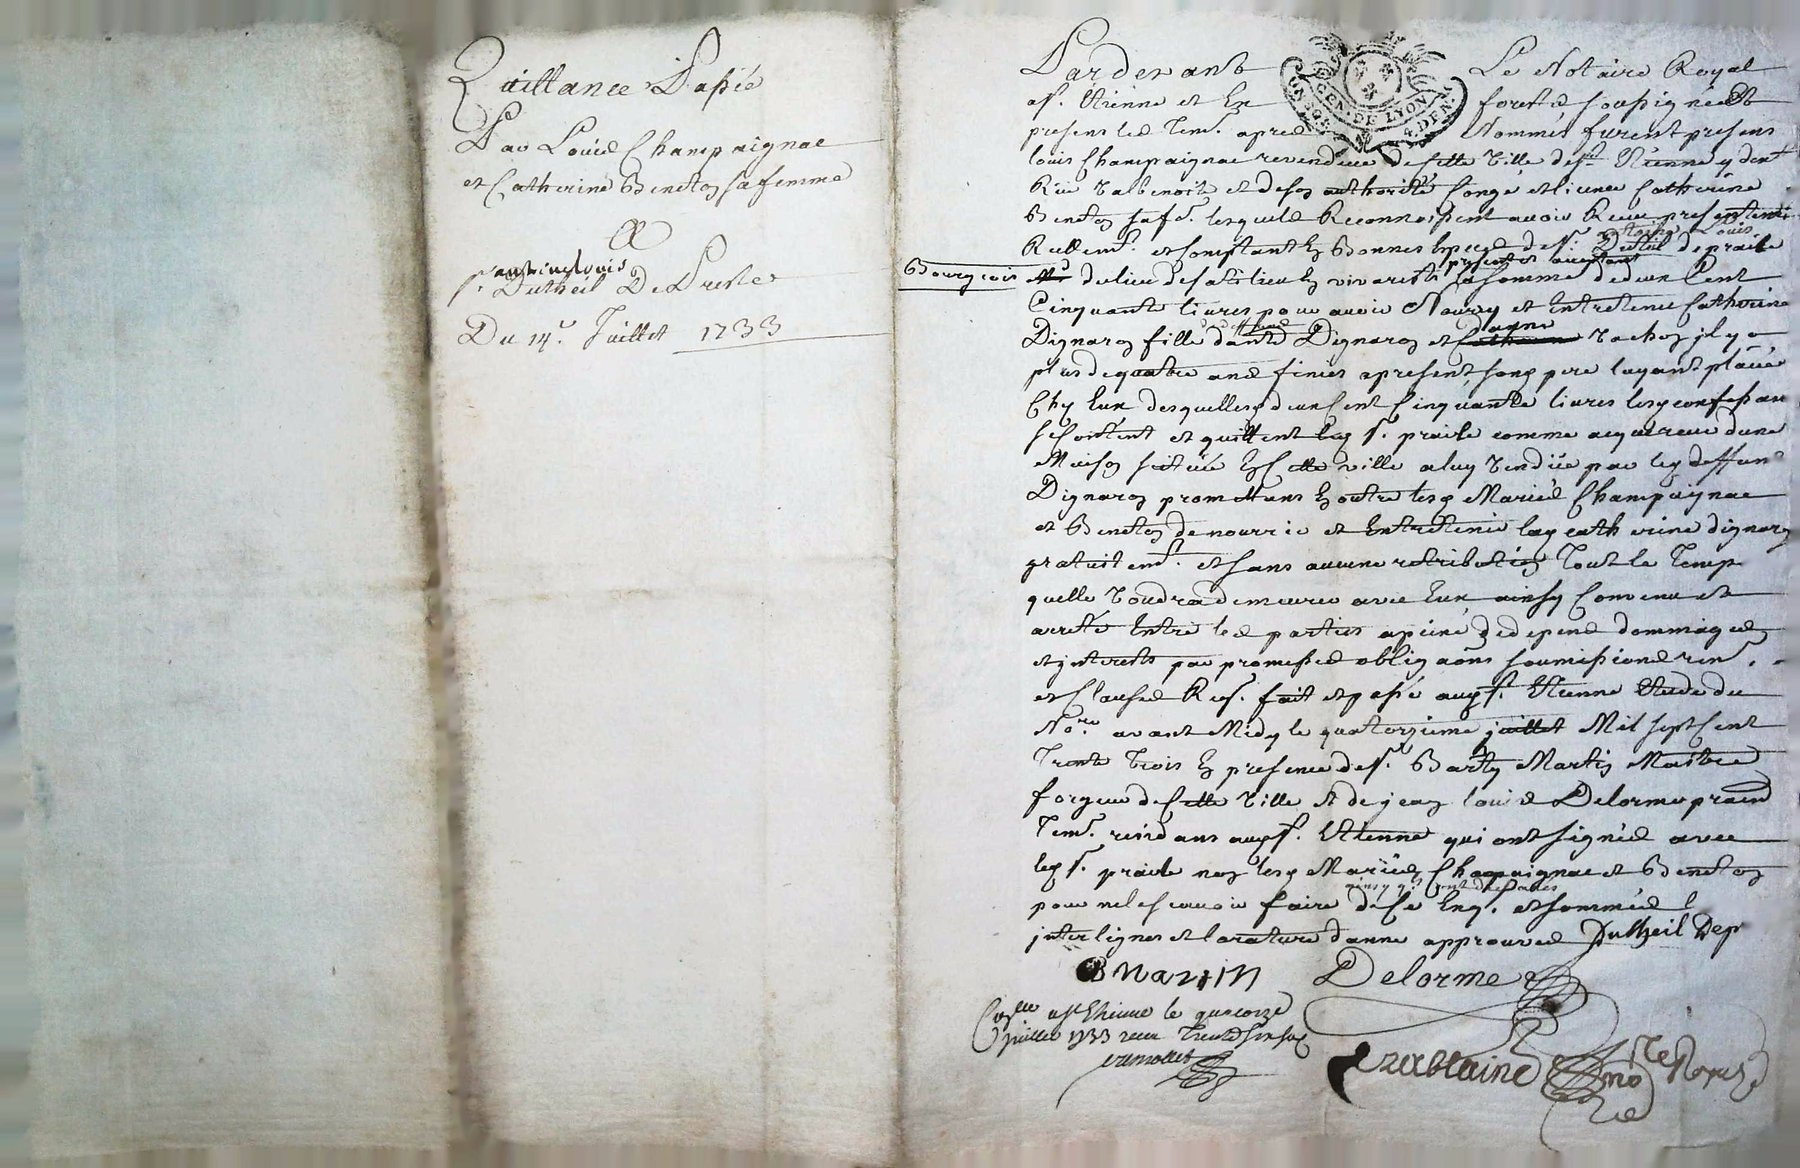 Quittance Passée
Par Louis Champaignac
et Catherine Beneton sa femme
A
Sr antoine louis
Dutheil De Presle
Du 14e Juillet 1733
Pardevant Le Notaire Royal
a St. Etienne et En forest soussigné et
presens les Tem. apres Nommés furent presens
GEN. DE LYON 4. DEN.
louis Champaignac revendeur de cette Ville de St. Etienne y demt
Rüe Valbenoite et de son authorité Congé et licence Catherine
Beneton sa fe. lesquels Reconnoissent avoir Receu presentement
antoine Louis
Reellemt. et Comptant En Bonnes Especes de Sr. Dutheil de praile
present et acceptant
Bourgeois du lieu de satilieu En vivarests la somme de d'un Cent
Cinquante livres pour avoir Nourry et Entretenu Catherine
anne
Dignaron fille Dignaron et Vachon il y a
plus de quatre ans finies a present son pere layant placée
Chez Eux desquelles d'un Cent Cinquante livres lesq confessans
se Contentent et quittent led Sr. praile comme acquereur dune
Maison scituée En Cette ville a luy vendüe par led deffunt
Dignaron promettans En outre lesq Mariés Champaignac
et Beneton de nourrir et Entretenir laq catherine dignaron
gratuitemt. et sans aucune retribution Tout le Temps
quelle Voudra demeurer avec Eux ainsy Convenu et
arreté Entre les parties a peine de depens dommages
et interests par promesses obligaons soumissions renon.
et Clauses Req. fait et passé aud St. Etienne Etude du
Nore. avant Midy le quatorzieme juillet Mil sept Cent
Trente Trois En presence de Sr. Barty Martin Maistre
forgeur de Cette Ville et de jean louis Delorme pratien
Tem. residans aud St. Etienne qui ont signés avec
led Sr. praile non lesq Mariés Champaignac et Beneton
pour ne le scavoir faire de Ce Enq. et sommés
interlignes et la rature danne approuvés Dutheil Dep
B Martin Delorme
Conlle a st Etienne le quatorze
juillet 1733 receu Treize sols
nore Royal